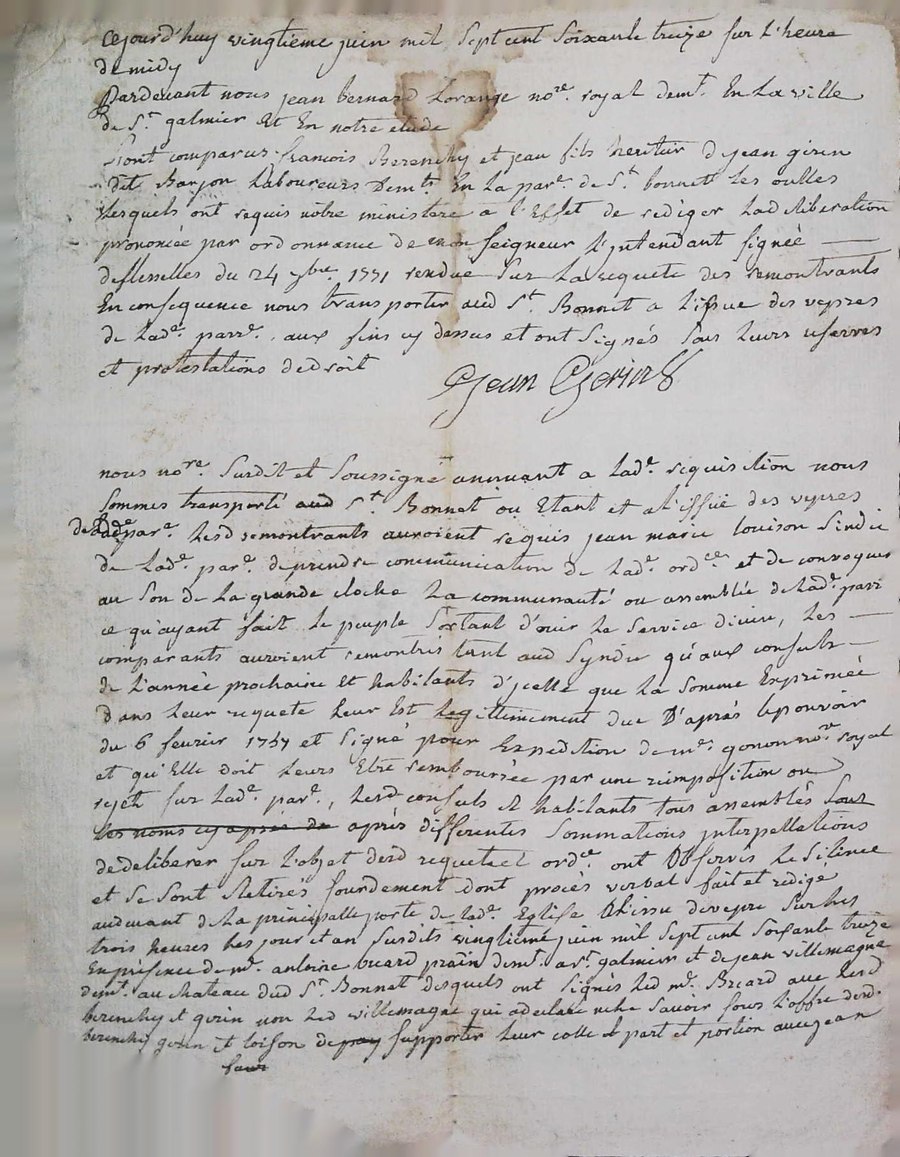 Cejourd'huy vingtieme juin mil sept cent soixante treize sur l'heure
de midy
Pardevant nous jean bernard Lorange nore. royal demt. En La ville
de St. galmier Et En notre etude
Sont comparus francois Berenchy et jean fils heritier de jean girin
dit Barjon Laboureurs Demts En La parr. de St. bonnet Les oulles
Lesquels ont requis nôtre ministere a l'Effet de rediger Ladeliberation
prononcée par ordonnance de mon seigneur L'jntendant signée
deflesselles du 24 7bre. 1771 rendue sur La requete des remontrants
En consequence nous transporter aud St. Bonnet a l'issue des vepres
de Lade. parre. aux fins cy dessus et ont signés sous Leurs reserves
et protestations dedroit
Jean Gerin
nous nore. susdit et soussigné annuant a Lade. requisition nous
sommes transporté aud St. Bonnet ou Etant et a l'issüe des vepres
de Lade parr. Lesd remontrants auroient requis jean marie Louison sindic
de Lade. parr. deprendre communication de Lade. ordce. et de convoquer
au son de La grande cloche La communauté ou assemblée de Lade. parr
ce qu'ayant fait Le peuple sortant d'ouir Le service divin, Les
comparants auroient remontrés tant aud syndic qu'aux consuls
de L'année prochaine Et habitants d'jcelle que La somme Exprimée
dans Leur requete Leur Est Legittimement due D'après Lepouvoir
du 6 fevrier 1757 et signé pour Expedition de me. gonon nore royal
et qu'Elle doit Leurs Etre remboursée par une reimposition ou
rejet sur Lade. parr., Lesd consuls Et habitants tous assemblés sous
les noms cy après de après differentes sommations jnterpellations
dedeliberer sur L'objet desd requete et ordce. ont observés Le silence
et se sont Retirés sourdement dont procés verbal fait et redigé
audevant de La principalle porte de Lade. Eglise a L'issu devepre sur Les
trois heures Les jour et an susdits vingtieme juin mil sept cent soixante treize
En présence de me. antoine buard demt. a st. galmier et de jean villemagne
demt. au chateau dud St Bonnet Lesquels ont signés Led me. Buard avec Lesd
berenchy et gerin non Led villemagne qui adeclaré ne le savoir sous L'offre desd.
berenchy gerin Et Loison de supporter Leur cotte et part et portion avec jean